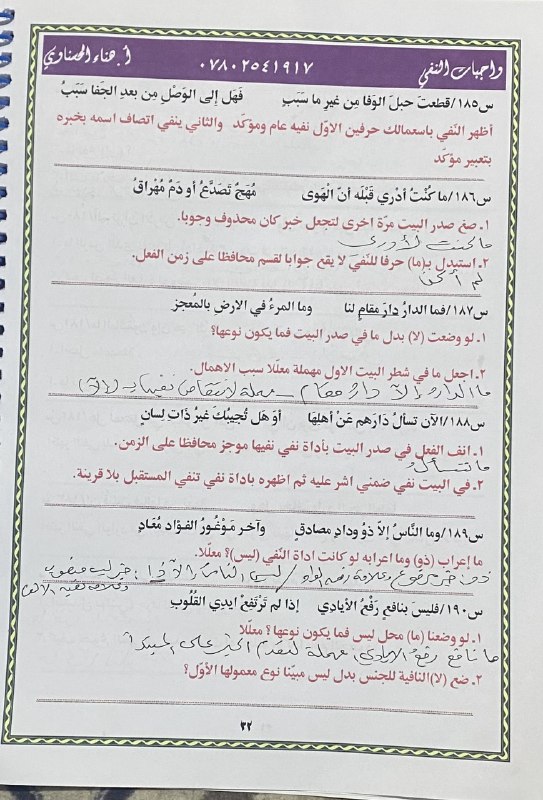 واجبات النفي ٠٧٨٠٢٥٤١٩١٧ أ.هناء الحسناوي
س١٨٥/قطعتَ حبلَ الوَفا مِن غيرِ ما سَبَبٍ فَهَل إلى الوَصْلِ مِن بعدِ الجَفا سَبَبُ
أظهر النّفي باسعمالك حرفين الاوّل نفيه عام ومؤكد والثاني ينفي اتصاف اسمه بخبره
بتعبير مؤكد
س١٨٦/ما كُنْتُ أدْرِي قَبْلَه أنّ الْهَوى مُهَجٌ تَصَدَّعُ أو دَمٌ مُهْراقُ
١ـ صغ صدر البيت مرّة اخرى لتجعل خبر كان محذوف وجوبا.
ما كنت لأدري
٢ـ استبدل بـ(ما) حرفا للنّفي لا يقع جوابا لقسم محافظا على زمن الفعل.
لم أكنْ
س١٨٧/فما الدارُ دارَ مقامٍ لنا وما المرءُ في الارضِ بالمُعجزِ
١ـ لو وضعت (لا) بدل ما في صدر البيت فما يكون نوعها؟
٢ـ اجعل ما في شطر البيت الاول مهملة معللًا سبب الاهمال.
ما الدارُ إلّا دارُ مقام ـ مهملة لانتقاض نفيها بـ (إلّا)
س١٨٨/الآن تسألُ دَارَهم عَنْ أهلِها أوَ هَل تُجيبُكَ غيرُ ذَاتِ لسانِ
١ـ انف الفعل في صدر البيت بأداة نفي نفيها موجز محافظا على الزمن.
ما تسألُ
٢ـ في البيت نفي ضمني اشر عليه ثم اظهره باداة نفي تنفي المستقبل بلا قرينة.
س١٨٩/وما النَّاسُ إلاّ ذَو ودادٍ مصادقٍ وآخر مَوْغُورُ الفؤاد مُعَادِ
ما إعراب (ذو) وما اعرابه لو كانت اداة النّفي (ليس)؟ معللًا.
ذو: خبر مرفوع وعلامة رفعه الواو / ليس الناسُ إلّا ذا: خبر ليس منصوب
وعلامة نصبه الالف
س١٩٠/فليسَ بنافعٍ رَفْعُ الأيادي إذا لم تَرْتَفِعْ ايدي القُلُوبِ
١ـ لو وضعنا (ما) محل ليس فما يكون نوعها؟ معللًا
ما نافع رفعُ الايادي: مهملة لتقدم الخبر على المبتدأ
٢ـ ضع (لا) النافية للجنس بدل ليس مبيّنا نوع معمولها الأوّل؟
٣٢